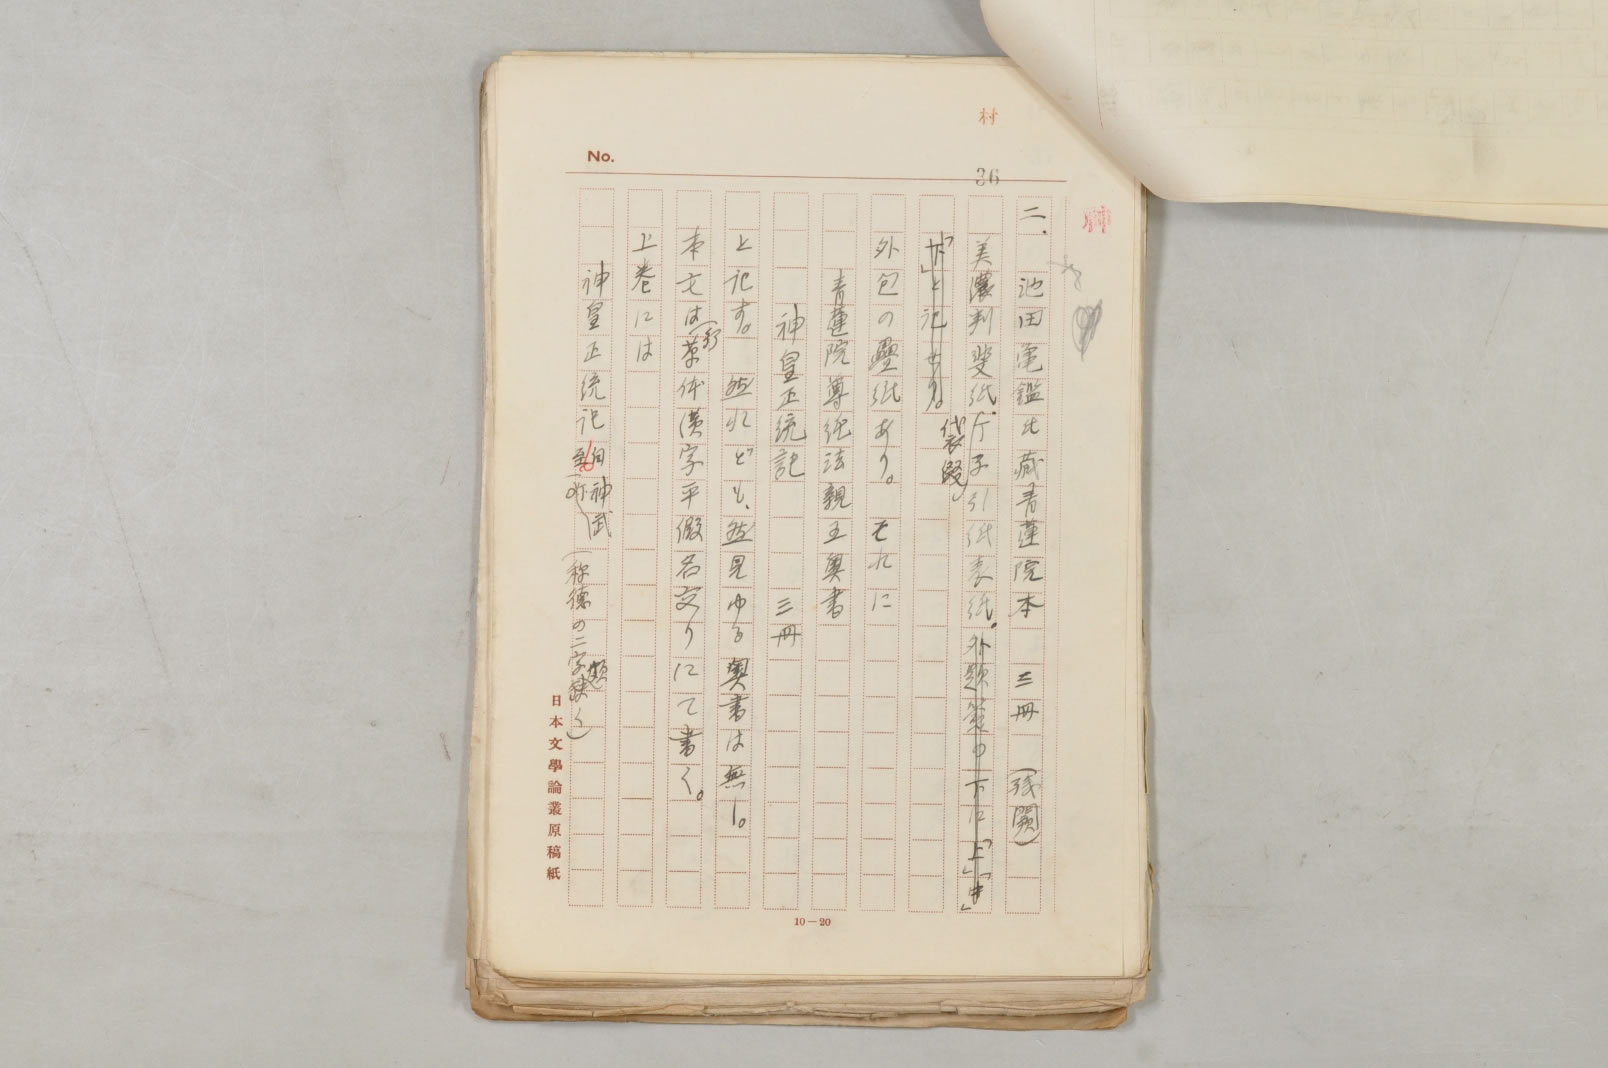 村
No.
36
神
二、池田亀鑑氏藏青蓮院本 三冊 (残闕)
美濃判斐紙。行子引紙表紙。外題簽の下に「上」「中」
「下」と記せり。
袋綴)
外包の疊紙あり。それに
青蓮院尊純法親王奥書
神皇正統記 三冊
と記す。然れども、然見ゆる奥書は無し。
本文は(行)草体漢字平假名交りにて書く。
上巻には
神皇正統記 自神武
至
(称徳の二字
日本文學論叢原稿紙
10—20